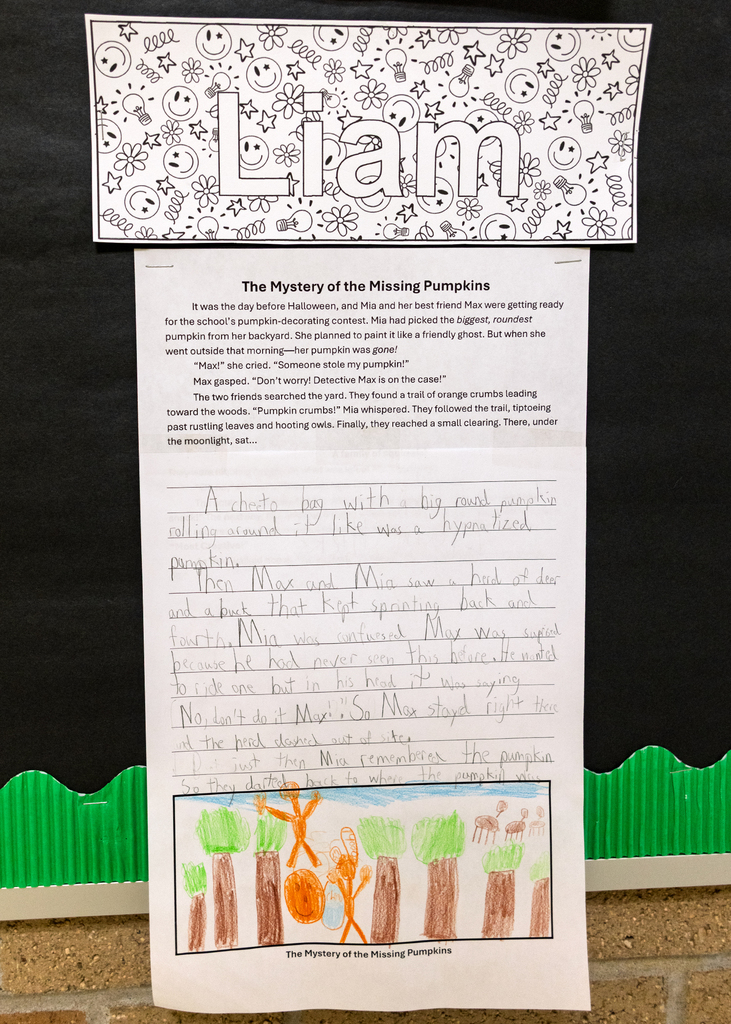 Liam
The Mystery of the Missing Pumpkins
It was the day before Halloween, and Mia and her best friend Max were getting ready
for the school's pumpkin-decorating contest. Mia had picked the biggest, roundest
pumpkin from her backyard. She planned to paint it like a friendly ghost. But when she
went outside that morning—her pumpkin was gone!
"Max!" she cried. "Someone stole my pumpkin!"
Max gasped. "Don't worry! Detective Max is on the case!"
The two friends searched the yard. They found a trail of orange crumbs leading
toward the woods. "Pumpkin crumbs!" Mia whispered. They followed the trail, tiptoeing
past rustling leaves and hooting owls. Finally, they reached a small clearing. There, under
the moonlight, sat...
A cheeto bag with a big round pumpkin
rolling around it like was a hypnatized
pumpkin.
Then Max and Mia saw a herd of deer
and a buck that kept sprinting back and
fourth. Mia was confuesed Max was
because he had never seen this before. He wanted
to ride one but in his head it was saying
No, don't do it Max!" So Max stayed right there
and the herd dashed out of site.
just then Mia remembered the pumpkin
So they darted back to where the pumpkin was
The Mystery of the Missing Pumpkins